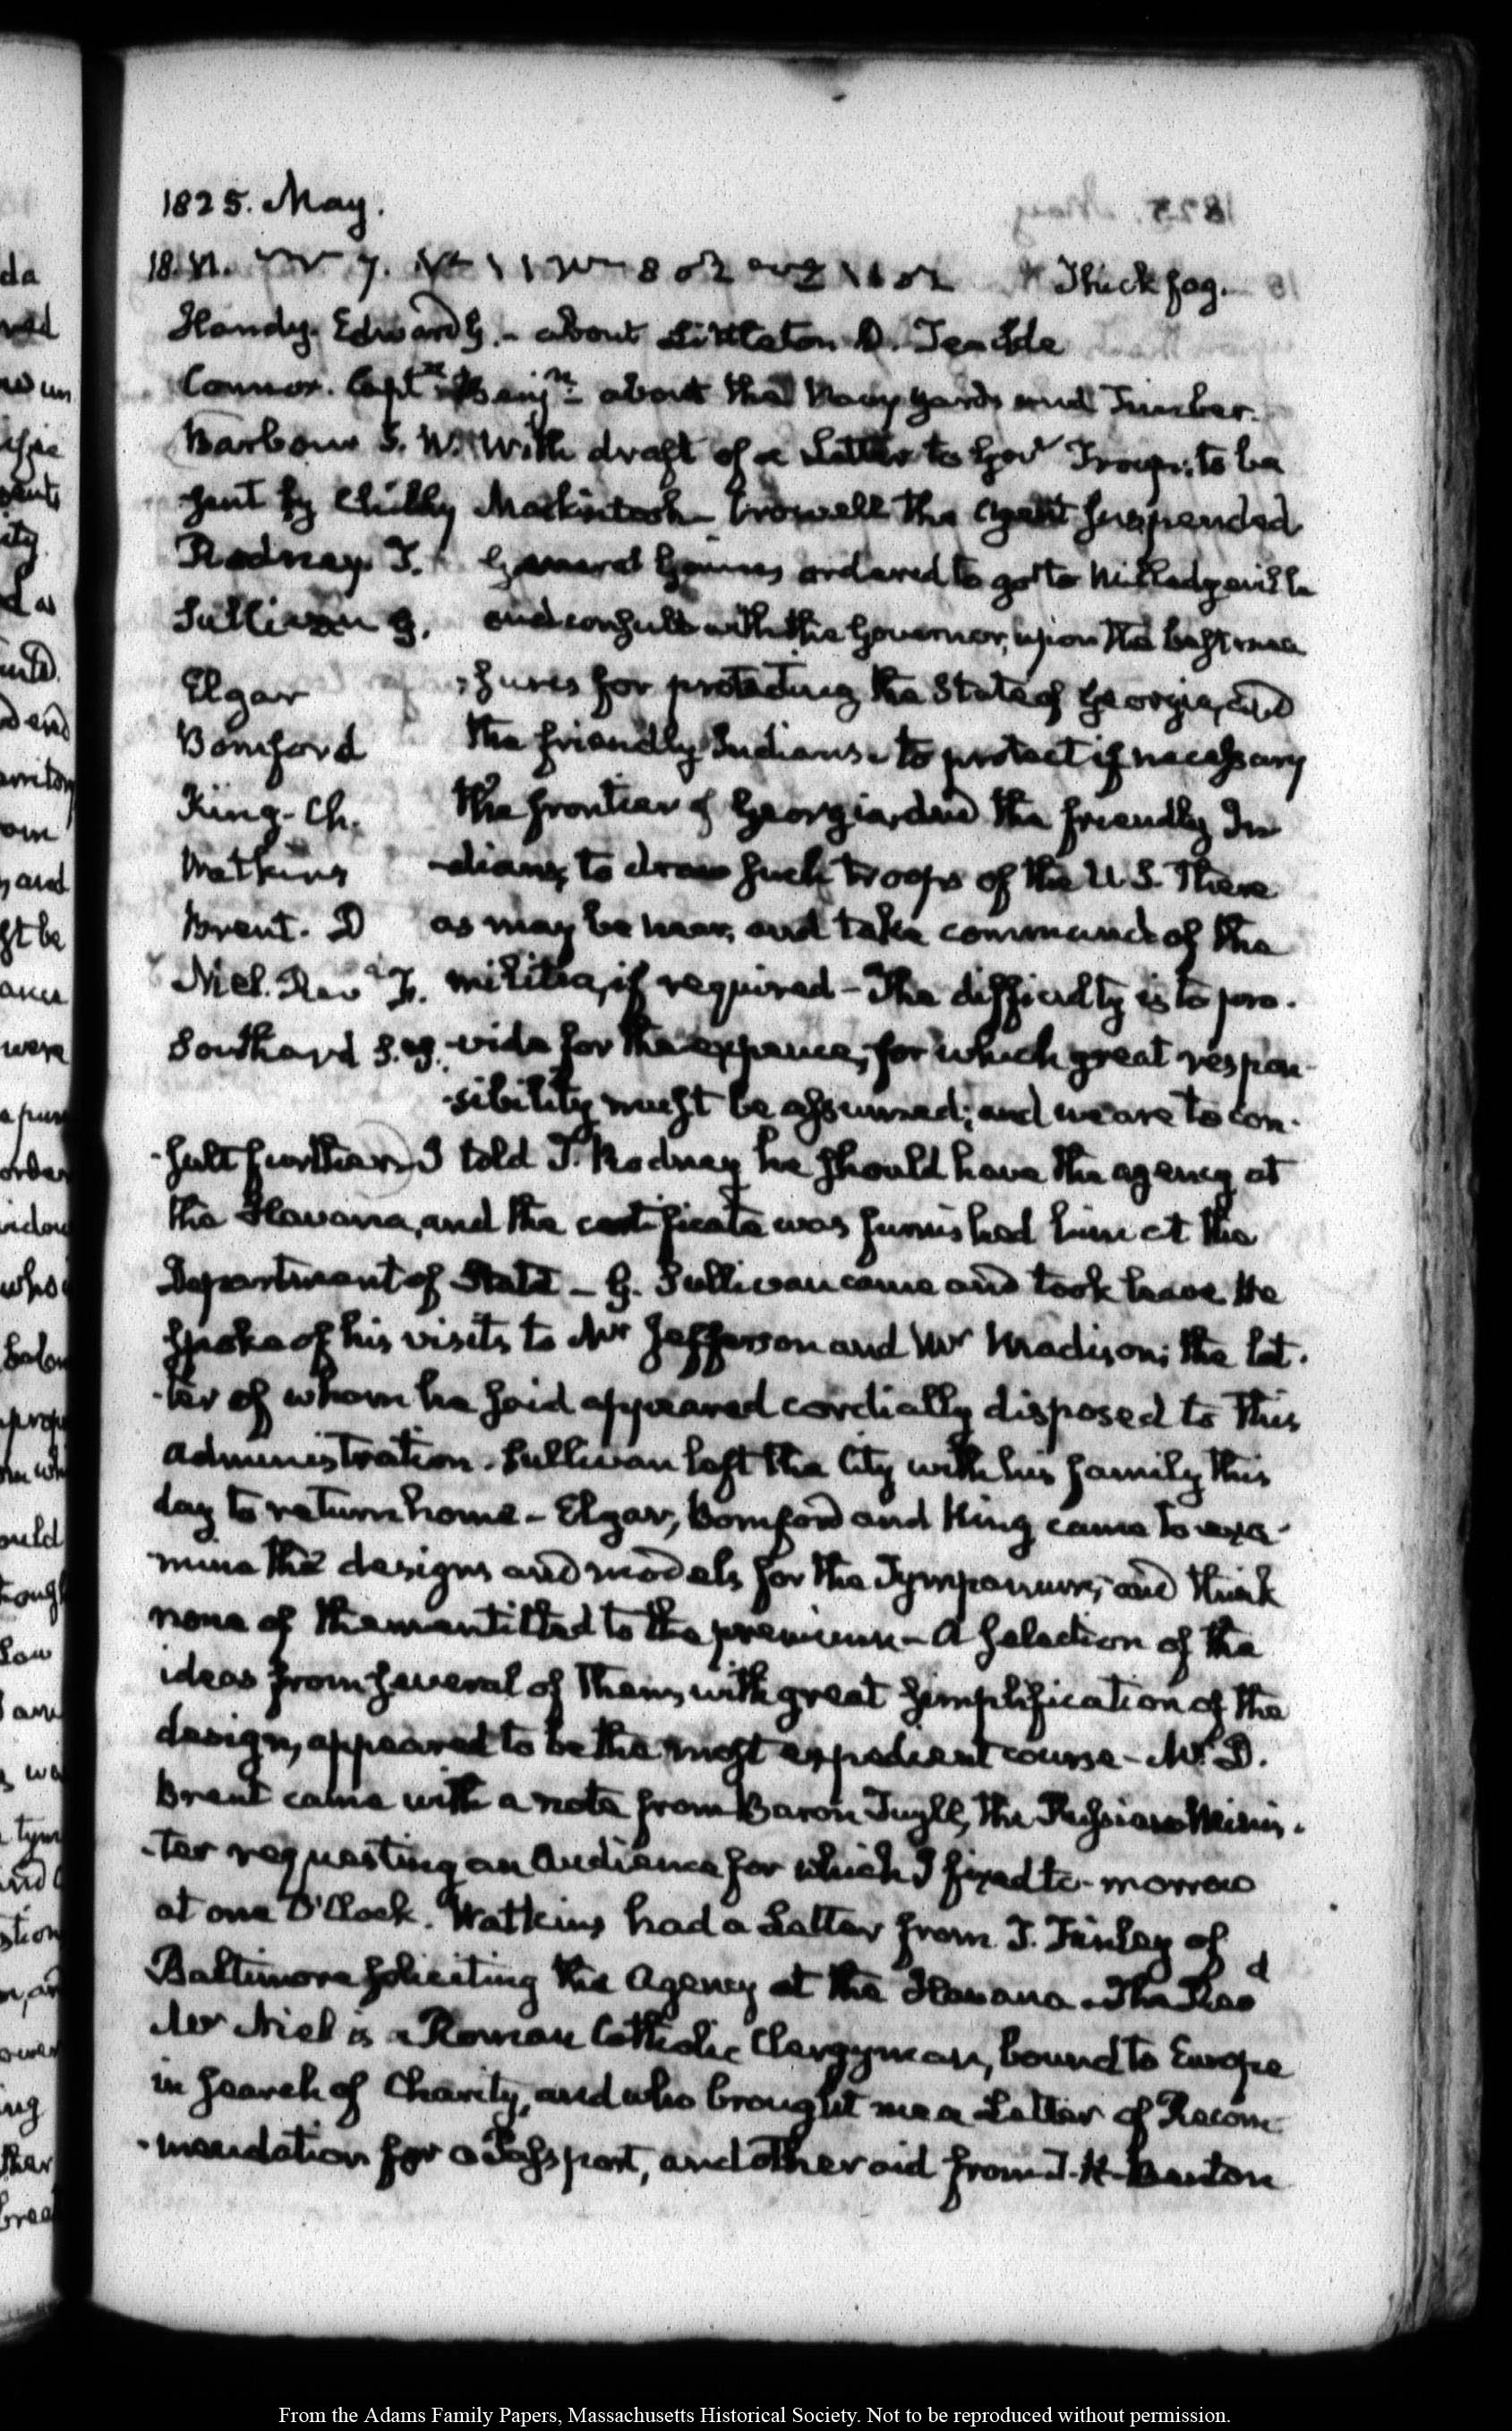 1825. May.
18. Thick fog.
Handy. Edward G. - about Littleton D. Teackle
Connor. Captn. Benjn. about the Navy yards and Timber.
Barbour S. W. With draft of a Letter to Govr Troup: to be
sent by Chilly Mackintosh - Crowell the Agent suspended
Rodney. T. General Gaines ordered to go to Milledgeville
Sullivan G. and consult with the Governor, upon the best mea
Elgar -sures for protecting the State of Georgia, and
Bomford the friendly Indians. to protect if necessary
King - Ch. the frontier of Georgia, and the friendly In
Watkins -dians, to draw such troops of the U.S. there
Brent. D as may be near, and take command of the
Niel. Revd F. militia, if required - The difficulty is to pro-
Southard S. vide for the expence, for which great respon-
-sibility must be assumed; and we are to con-
-sult further) I told T. Rodney he should have the agency at
the Havana, and the certificate was furnished him at the
Department of State - G. Sullivan came and took leave He
spoke of his visits to Mr Jefferson and Mr Madison; the lat-
-ter of whom he said appeared cordially disposed to this
administration. Sullivan left the City with his family this
day to return home - Elgar, Bomford and King came to exa-
mine the designs and models for the Tympanum; and think
none of them entitled to the premium - A selection of the
ideas from several of them, with great simplification of the
design, appeared to be the most expedient course - Mr D.
Brent came with a note from Baron Tuyll, the Russian Minis-
-ter requesting an Audience for which I fixed to-morrow
at one O'Clock. Watkins had a Letter from J. Finley of
Baltimore soliciting the Agency at the Havana. The Revd
Mr Niel is a Roman Catholic Clergyman, bound to Europe
in search of Charity, and who brought me a Letter of Recom
-mendation for a Passport, and other aid from T. H. Benton
From the Adams Family Papers, Massachusetts Historical Society. Not to be reproduced without permission.